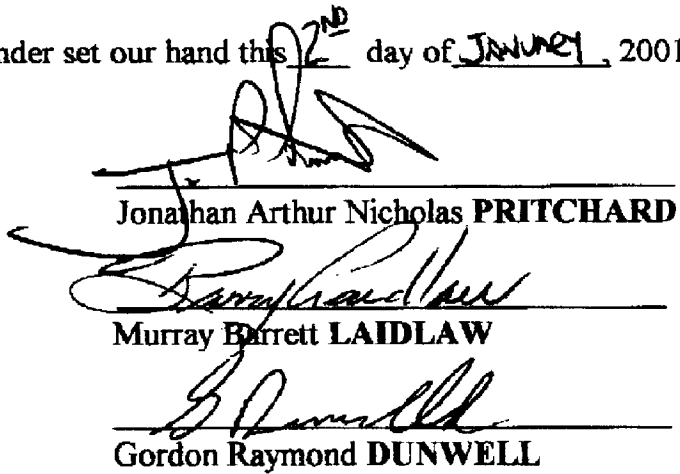 nder set our hand this 2ND day of JANUARY, 2001
Jonathan Arthur Nicholas PRITCHARD
Murray Barrett LAIDLAW
Gordon Raymond DUNWELL